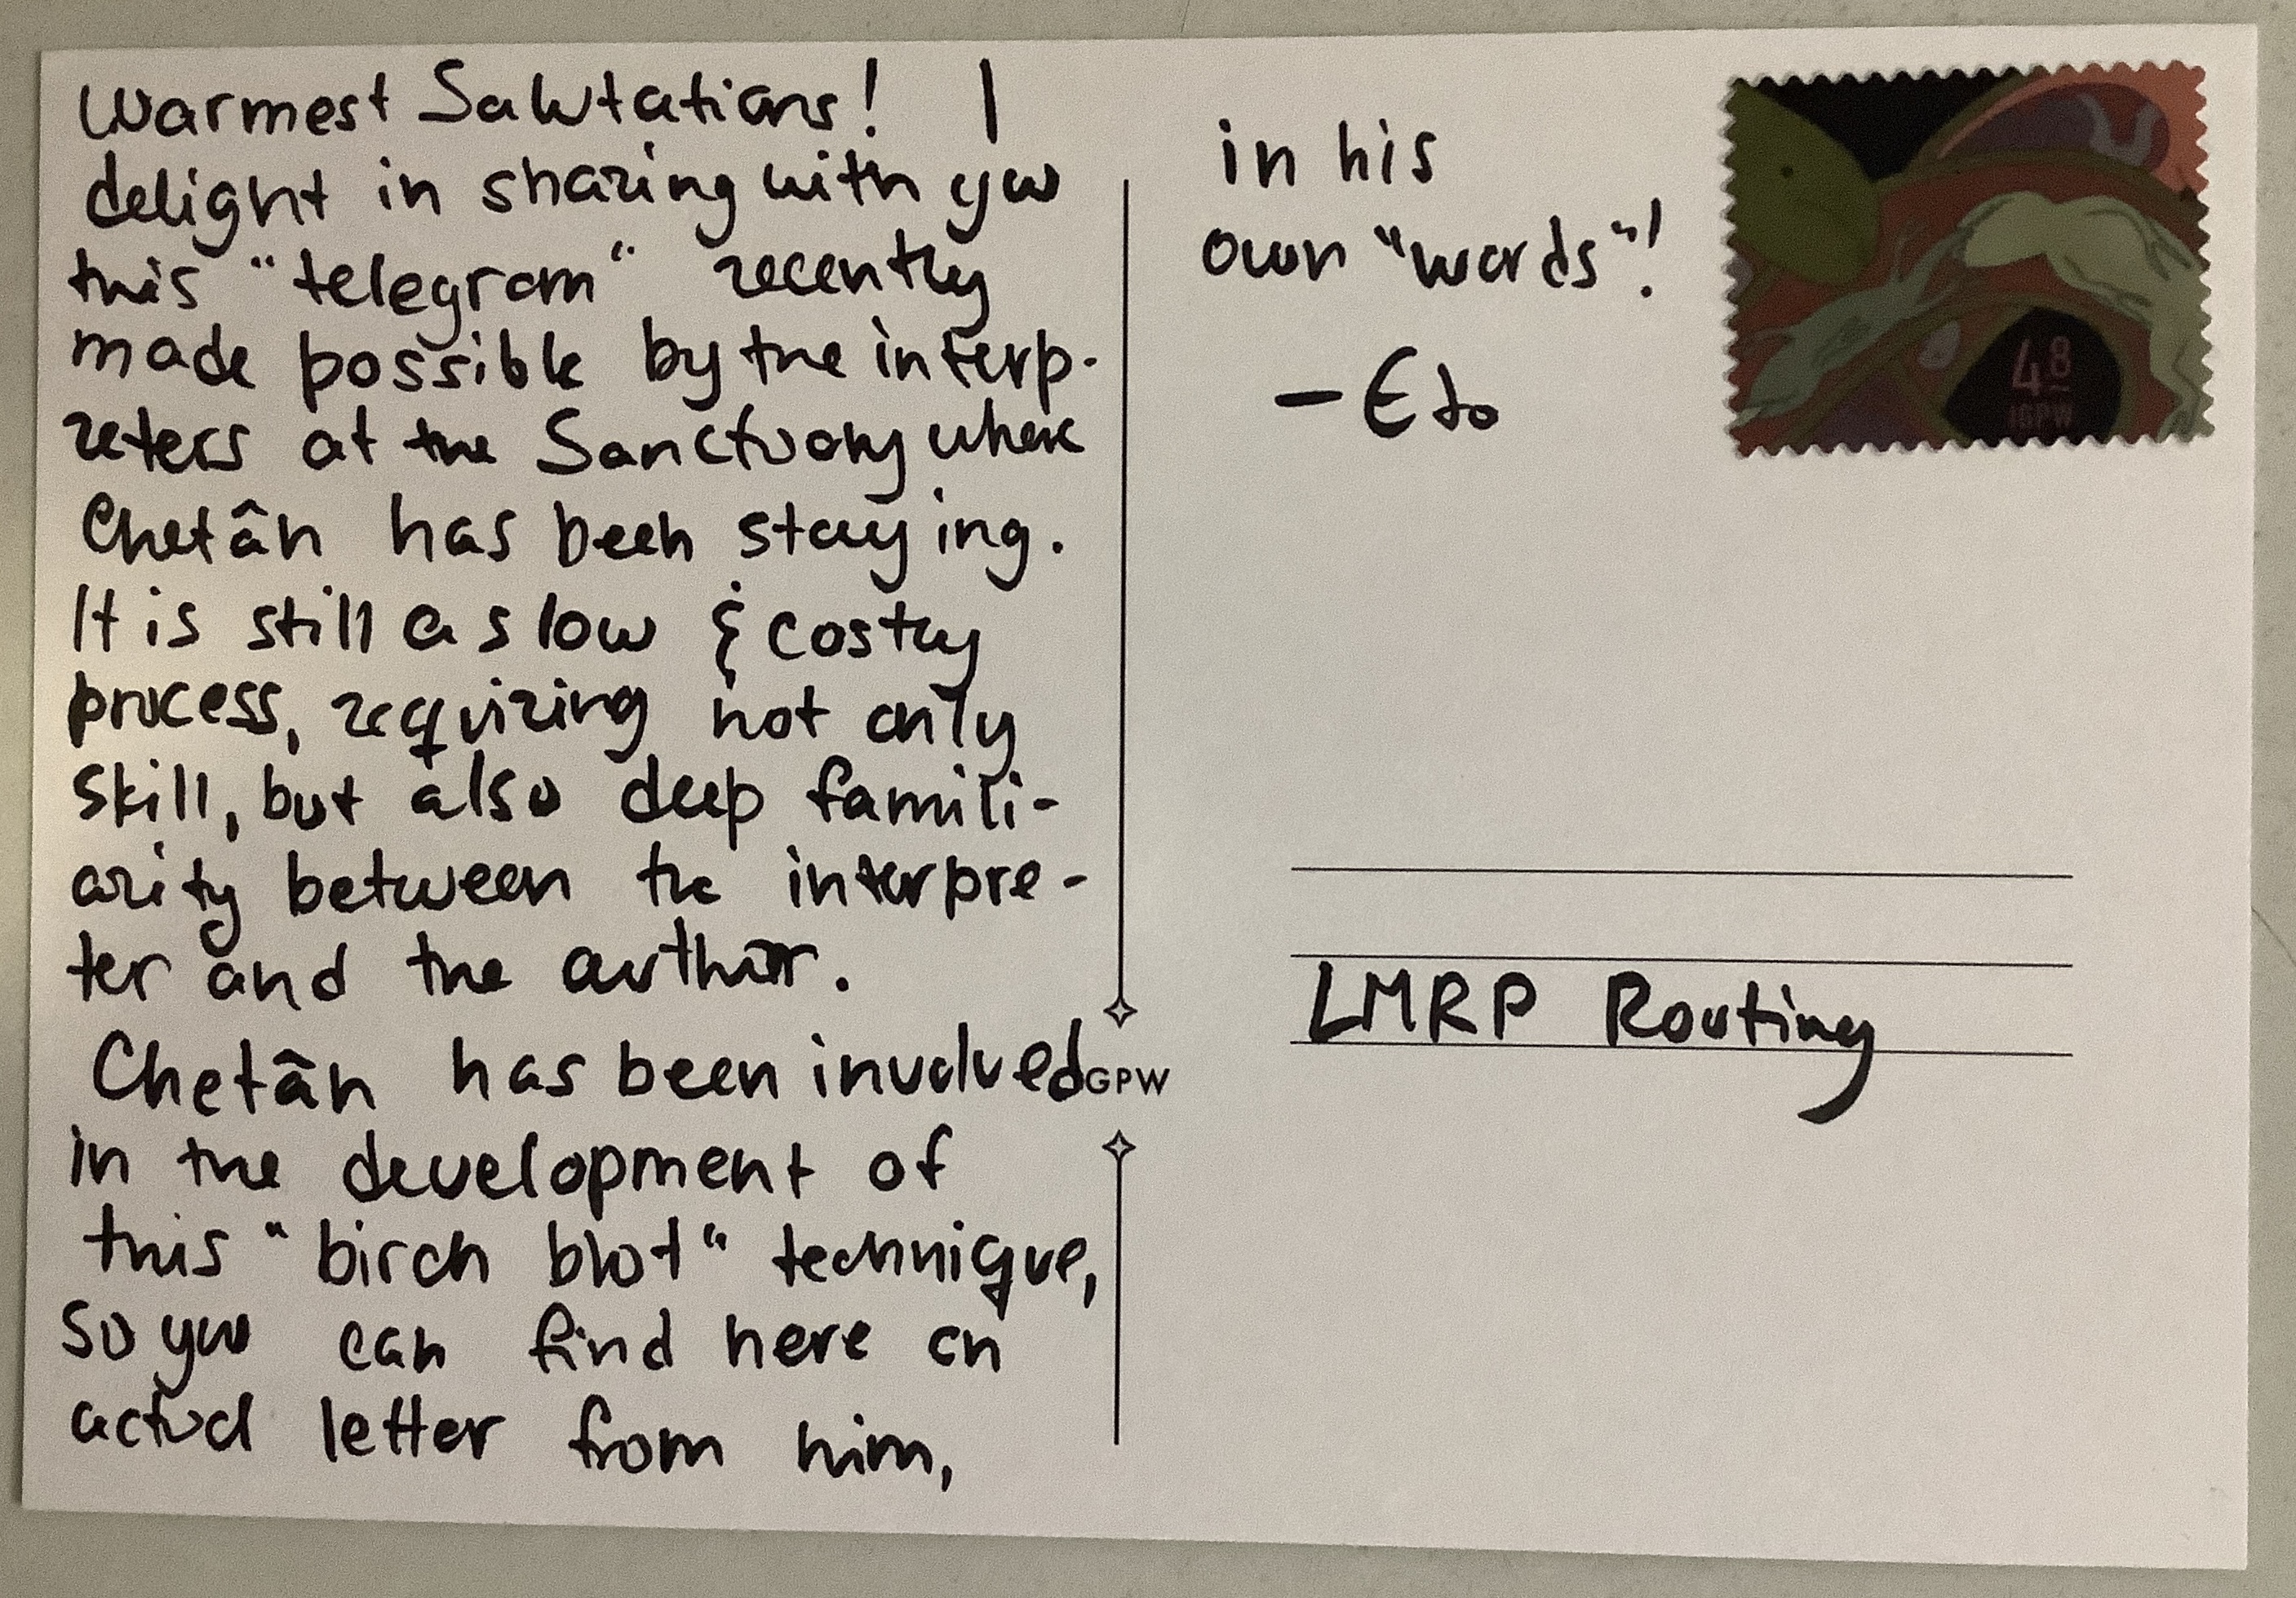 Warmest Salutations! I
delight in sharing with you
this "telegram" recently
made possible by the interp-
reters at the Sanctuary where
Chetân has been staying.
It is still a slow & costly
process, requiring not only
skill, but also deep famili-
arity between the interpre-
ter and the author.
Chetân has been involved
in the development of
this "birch blot" technique,
so you can find here an
actual letter from him,
GPW
in his
own "words"!
- Eto
48
GPW
LMRP Routing